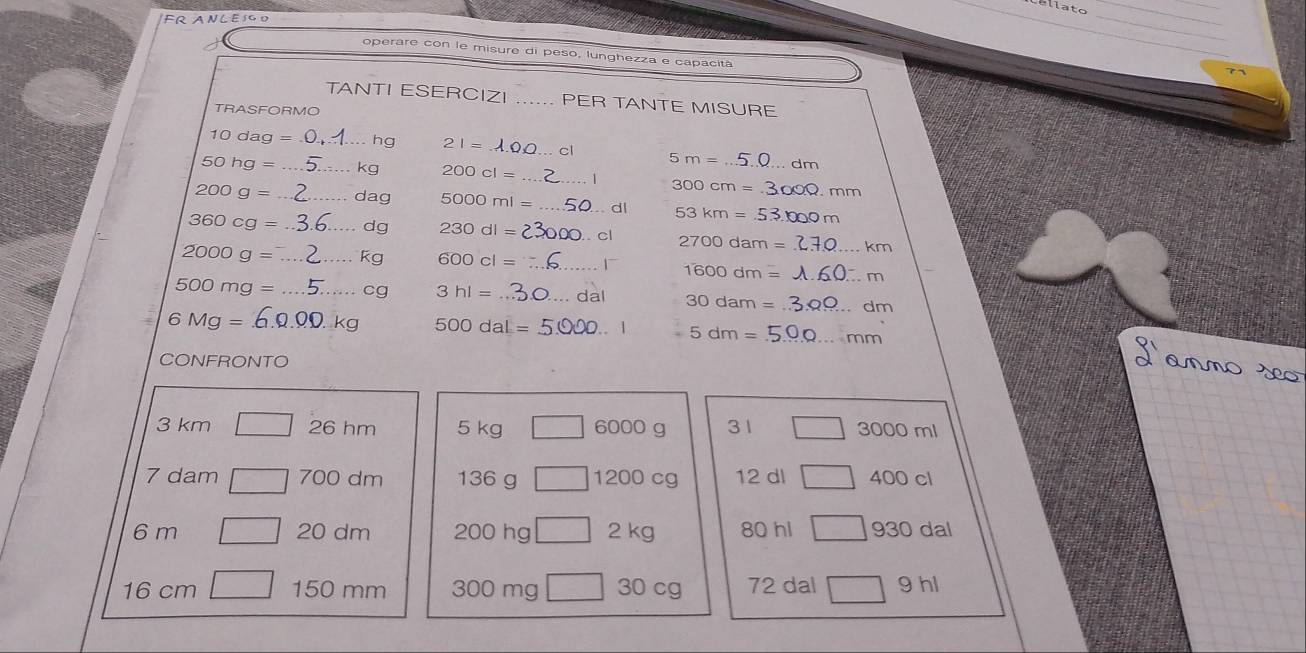 FRANCESCO
cellato
operare con le misure di peso, lunghezza e capacità
71
TANTI ESERCIZI ...... PER TANTE MISURE
TRASFORMO
10 dag = 0,1 hg
50 hg = 5 kg
200 g = 2 dag
360 cg = 3.6 dg
2000 g = 2 kg
500 mg = 5 cg
6 Mg = 6.000 kg
2 l = 100 cl
200 cl = 2 l
5000 ml = 50 dl
230 dl = 23000 cl
600 cl = 6 l
3 hl = 30 dal
500 dal = 5000 l
5 m = 50 dm
300 cm = 3000 mm
53 km = 53.000 m
2700 dam = 270 km
1600 dm = 160 m
30 dam = 300 dm
5 dm = 500 mm
L'anno
CONFRONTO
3 km 26 hm
7 dam 700 dm
6 m 20 dm
16 cm 150 mm
5 kg 6000 g
136 g 1200 cg
200 hg 2 kg
300 mg 30 cg
3 l 3000 ml
12 dl 400 cl
80 hl 930 dal
72 dal 9 hl